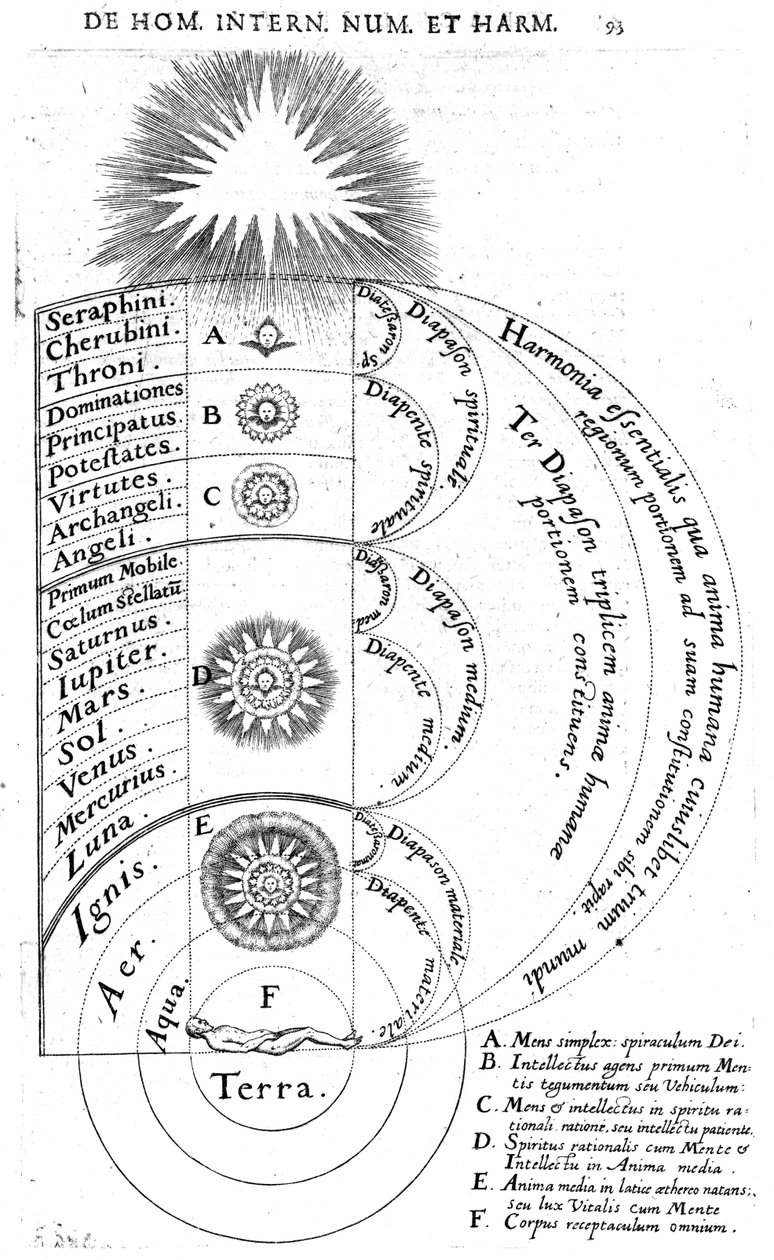 DE HOM. INTERN. NUM. ET HARM. 93
Seraphini.
Cherubini.
Throni.
Dominationes
Principatus.
Poteſtates.
Virtutes.
Archangeli.
Angeli.
Primum Mobile
Cœlum Stellatū
Saturnus.
Iupiter.
Mars.
Sol.
Venus.
Mercurius.
Luna.
Ignis.
Aer.
Aqua.
Terra.
A
B
C
D
E
F
Diateſsaron sp
Diapaſon spirituale.
Diapente spirituale
med
Diapaſon medium.
Diapente medium.
Diapason materiale.
Diapente materiale.
Harmonia eſsentialis qua anima humana cuiuslibet trium mundi
regionum portionem ad suam conſtitutionem sibi rapit.
Ter Diapaſon triplicem animæ humanæ
portionem constituens.
A. Mens simplex: spiraculum Dei.
B. Intellectus agens primum Men:
tis tegumentum seu Vehiculum:
C. Mens & intellectus in spiritu ra:
tionali, ratione, seu intellectu patiente.
D. Spiritus rationalis cum Mente &
Intellectu in Anima media.
E. Anima media in latice æthereo natans:,
seu lux Vitalis cum Mente
F. Corpus receptaculum omnium.